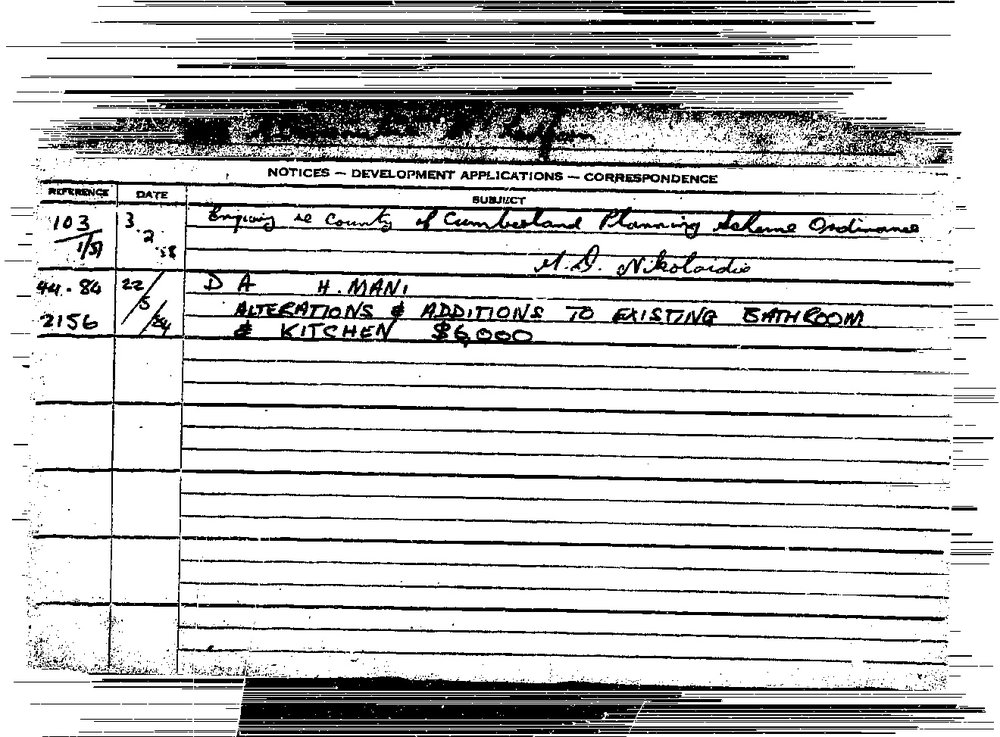 NOTICES — DEVELOPMENT APPLICATIONS — CORRESPONDENCE
REFERENCE DATE SUBJECT
103 3 Enquiry re County of Cumberland Planning Scheme Ordinance
2
58
M. D. Nikolaidis
44.84 22/ D A H. MANI
5 ALTERATIONS & ADDITIONS TO EXISTING BATHROOM
2156 /84 & KITCHEN $6,000